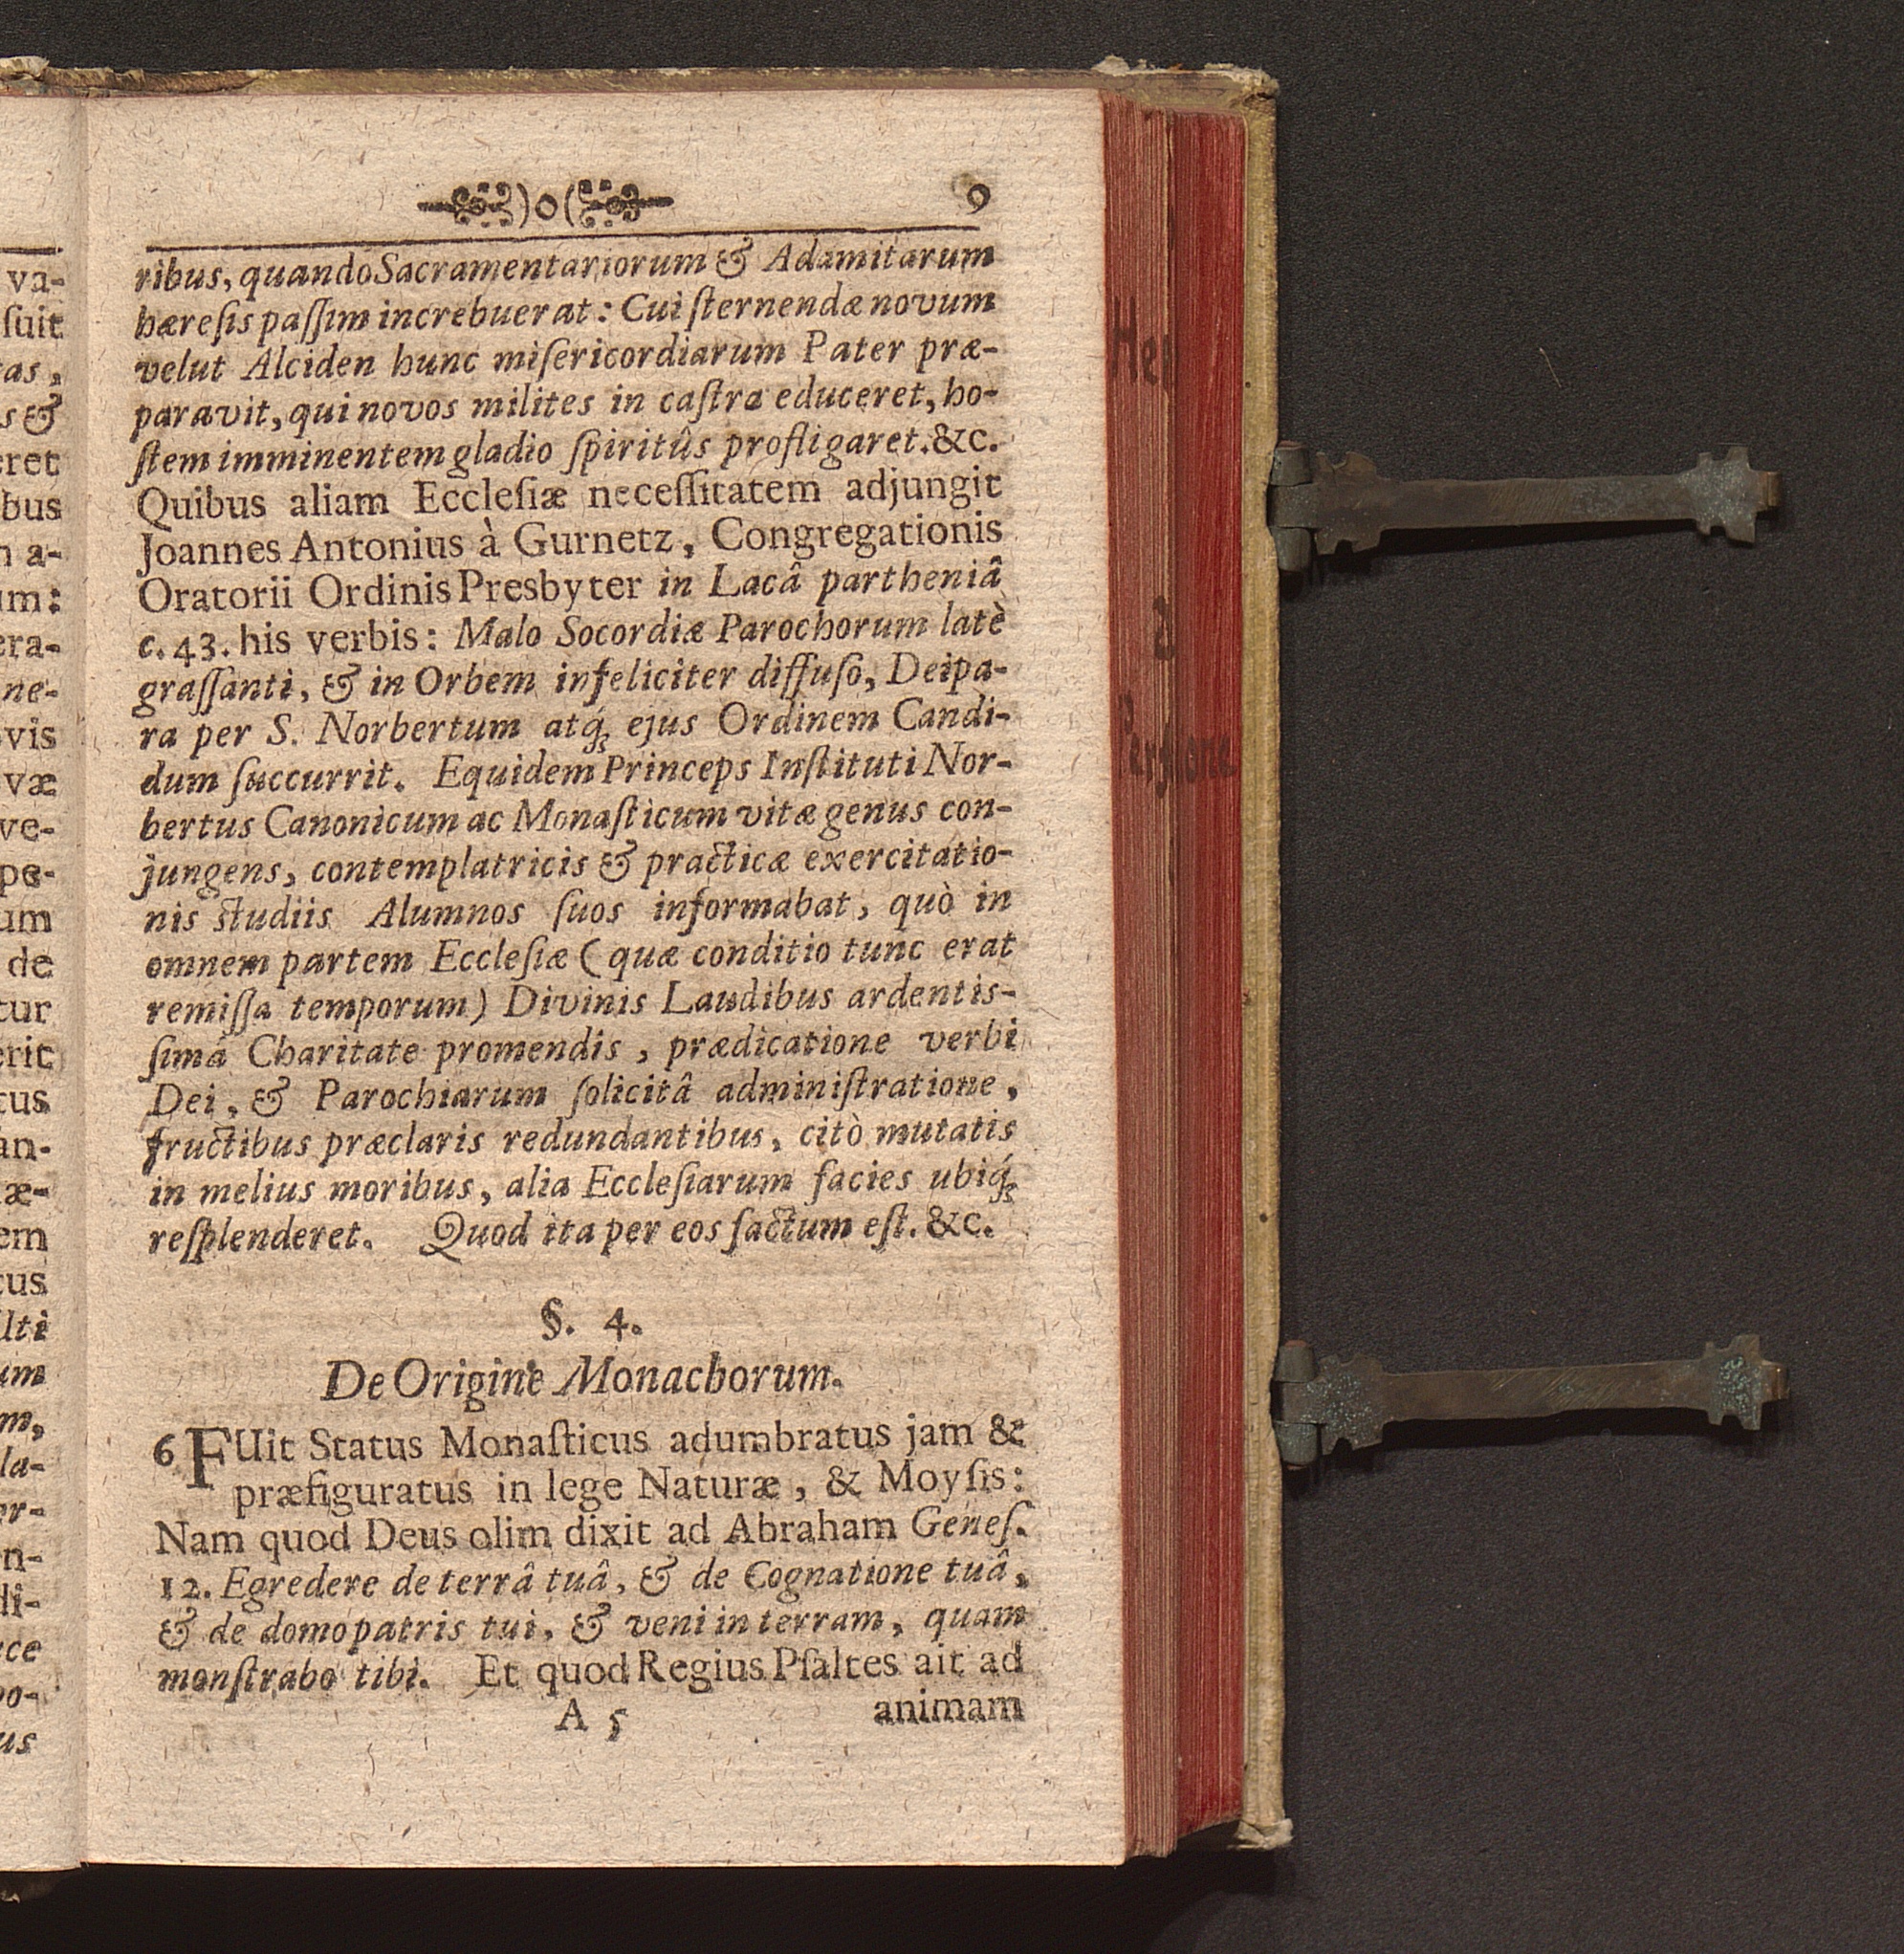 )o( 9
ribus, quando Sacramentariorum & Adamitarum
hæreſis paſſim increbuerat: Cui ſternendæ novum
velut Alciden hunc miſericordiarum Pater præ-
paravit, qui novos milites in caſtra educeret, ho-
ſtem imminentem gladio ſpiritûs profligaret. &c.
Quibus aliam Eccleſiæ neceſſitatem adjungit
Joannes Antonius à Gurnetz, Congregationis
Oratorii Ordinis Presbyter in Lacâ partheniâ
c. 43. his verbis: Malo Socordiæ Parochorum latè
graſſanti, & in Orbem infeliciter diffuſo, Deipa-
ra per S. Norbertum atq́ꝫ ejus Ordinem Candi-
dum ſuccurrit. Equidem Princeps Inſtituti Nor-
bertus Canonicum ac Monaſticum vitæ genus con-
jungens, contemplatricis & practicæ exercitatio-
nis ſtudiis Alumnos ſuos informabat, quò in
omnem partem Eccleſiæ (quæ conditio tunc erat
remiſſa temporum) Divinis Laudibus ardentis-
ſimá Charitate promendis, prædicatione verbi
Dei, & Parochiarum ſolicitâ adminiſtratione,
fructibus præclaris redundantibus, citò mutatis
in melius moribus, alia Eccleſiarum facies ubiq́ꝫ
reſplenderet. Quod ita per eos ſactum eſt. &c.
§. 4.
De Origine Monachorum.
6 FUit Status Monaſticus adumbratus jam &
præfiguratus in lege Naturæ, & Moyſis:
Nam quod Deus olim dixit ad Abraham Geneſ.
12. Egredere de terrâ tuâ, & de Cognatione tuâ,
& de domo patris tui, & veni in terram, quam
monſtrabo tibi. Et quod Regius Pſaltes ait ad
A 5 animam